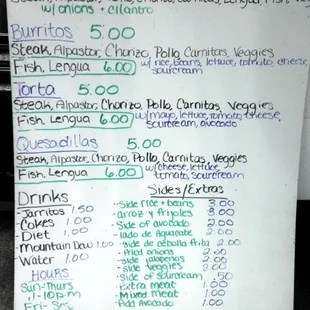 w/onions + cilantro
Burritos 5.00
Steak, Alpastor, Chorizo, Pollo, Carnitas, Veggies
Fish, Lengua 6.00 w/rice, beans, lettuce, tomato, cheese,
sourcream
Torta 5.00
Steak, Alpastor, Chorizo, Pollo, Carnitas, Veggies
Fish, Lengua 6.00 w/mayo, lettuce, tomato, cheese,
sourcream, avocado
Quesadillas 5.00
Steak, Alpastor, Chorizo, Pollo, Carnitas, Veggies
Fish, Lengua 6.00 w/cheese, lettuce,
tomato, sourcream
Drinks
-Jarritos 1.50
-Cokes 1.00
-Diet 1.00
-Mountain Dew 1.00
-Water 1.00
Hours
Sun-Thurs
11-10p.m
Fri-Sa
Sides/Extras
-Side rice + beans 3.00
-arroz y frijoles 3.00
-Side of avocado 2.00
-lado de aguacate 2.00
-side de cebolla frita 2.00
-fried onions 2.00
-side jalapeños 2.00
-side veggies 2.00
-Side of sourcream .50
-Extra meat 1.00
-Mixed meat 1.00
-Add Avocado 1.00